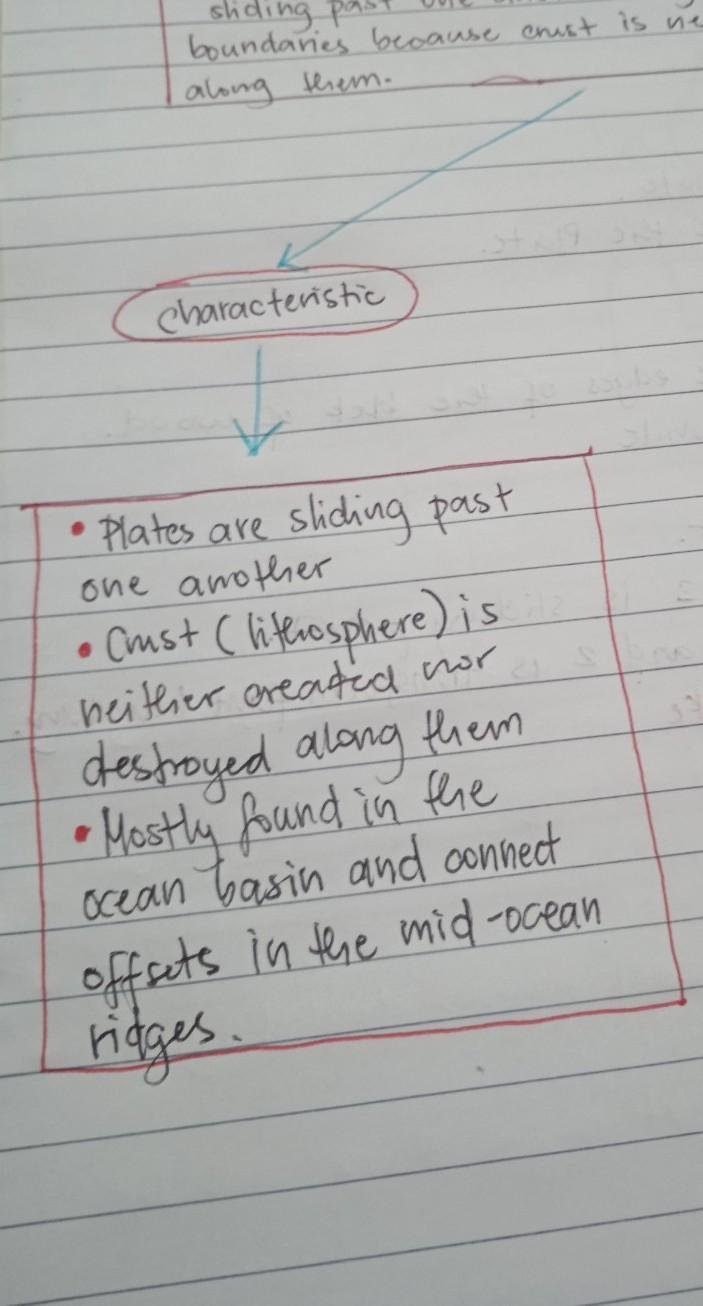 sliding past one
boundaries because crust is ne
along them.
Characteristic
• Plates are sliding past
one another
• Crust (lithosphere) is
neither created nor
destroyed along them
• Mostly found in the
ocean basin and connect
offsets in the mid-ocean
ridges.